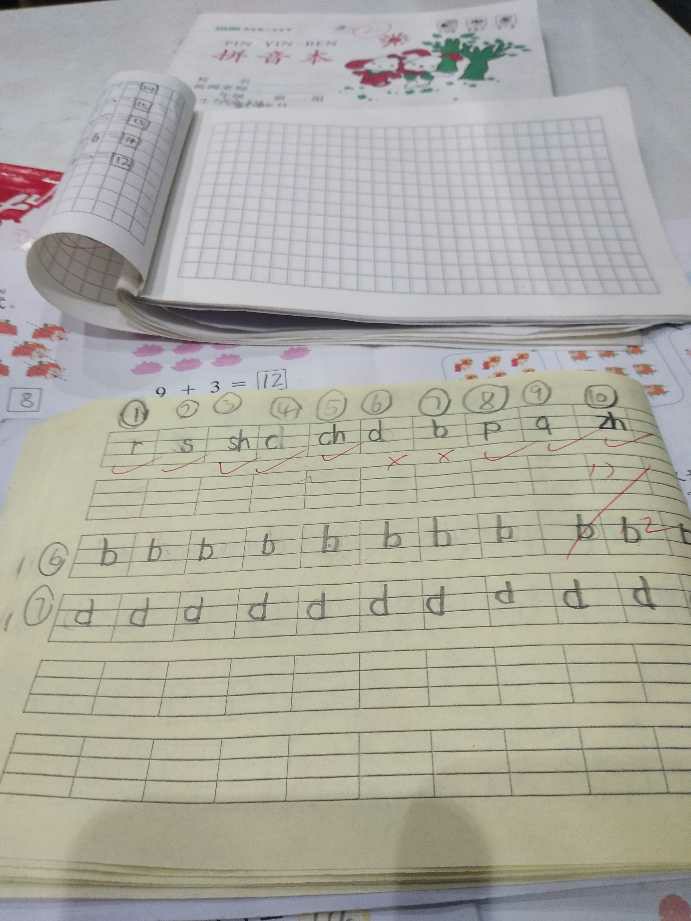 PIN YIN BEN
拼音本
12
8
9 + 3 = 12
① ② ③ ④ ⑤ ⑥ ⑦ ⑧ ⑨ ⑩
r s sh cl ch d b p q zh
⑥ b b b b b b b b b b
⑦ d d d d d d d d d d